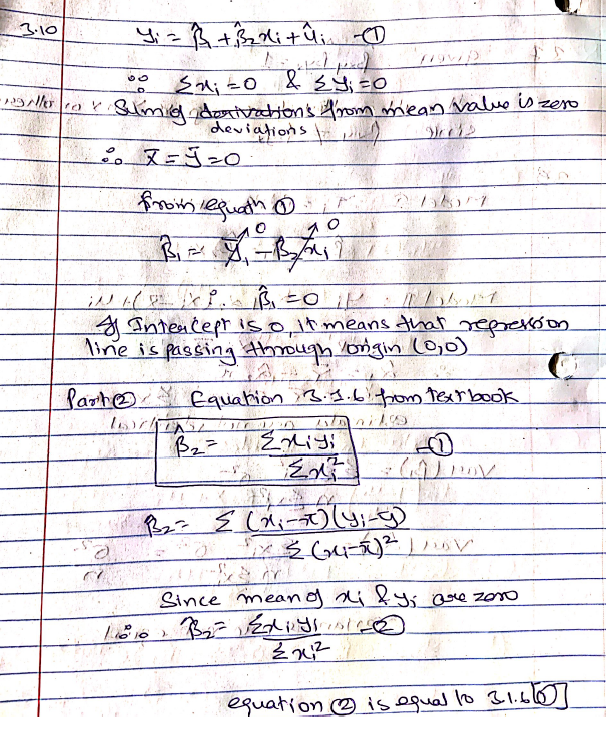 3.10
yᵢ = β̂₁ + β̂₂xᵢ + ûᵢ —①
∵ Σxᵢ = 0 & Σyᵢ = 0
Sum of derivations from mean value is zero
deviations
∴ x̄ = ȳ = 0
from equatn ①
β̂₁ = ȳ₁ - β₂xᵢ 0 0
∴ β̂₁ = 0
If Intercept is 0, it means that regression
line is passing through origin (0,0)
Part ② Equation 3.1.6 from textbook
β̂₂ = Σxᵢyᵢ / Σxᵢ² —①
β₂ = Σ(xᵢ-x̄)(yᵢ-ȳ) / Σ(xᵢ-x̄)²
Since mean of xᵢ & yᵢ are zero
∴ β̂₂ = Σxᵢyᵢ / Σxᵢ² —②
equation ② is equal to 3.1.6